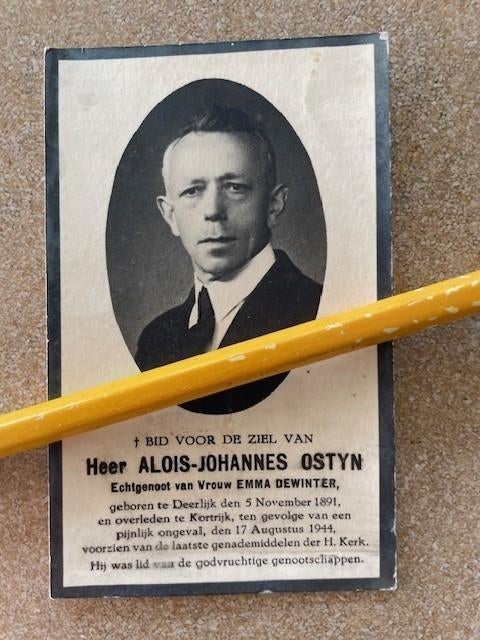 † BID VOOR DE ZIEL VAN
Heer ALOIS-JOHANNES OSTYN
Echtgenoot van Vrouw EMMA DEWINTER,
geboren te Deerlijk den 5 November 1891,
en overleden te Kortrijk, ten gevolge van een
pijnlijk ongeval, den 17 Augustus 1944,
voorzien van de laatste genademiddelen der H. Kerk.
Hij was lid van de godvruchtige genootschappen.